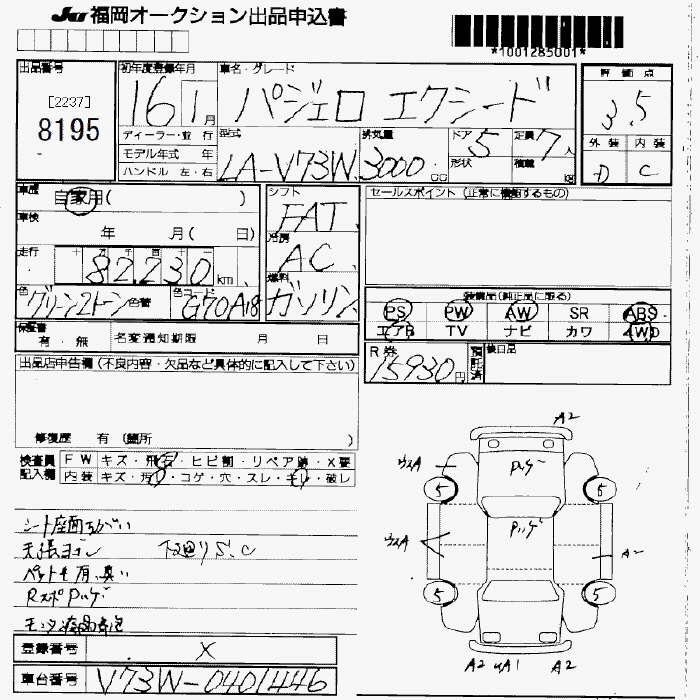 JU 福岡オークション出品申込書
*1001285001*
出品番号
[2237]
8195
初年度登録年月
16 1月
車名・グレード
パジェロ エクシード
評価点
3.5
ディーラー・並行
モデル年式 年
ハンドル 左・右
型式
LA-V73W
排気量
3000 cc
ドア 5
形状
定員 7人
積載 kg
外装 内装
D C
車歴
自家用( )
車検
年 月( 日)
走行
82,230 km
色
グリーン2トーン 色替
色コード
G70A18
シフト
FAT
冷房
AC
燃料
ガソリン
セールスポイント(正常に機能するもの)
装備品(純正品に限る)
PS PW AW SR ABS
エアB TV ナビ カワ 4WD
保証書
有・無
名変通知期限 月 日
R券
15930円
預託済
後日品
出品店申告欄(不良内容・欠品など具体的に記入して下さい)
修復歴 有(箇所 )
検査員記入欄
FW キズ・飛石・ヒビ割・リペア跡・X要
内装 キズ・汚れ・コゲ・穴・スレ・キレ・破レ
シート座面ちがい
天張ヨゴレ 下回りS.C
Rスポ
登録番号
X
車台番号
V73W-0401446
A2
5
5
A2
5
5
A2
A1
A2